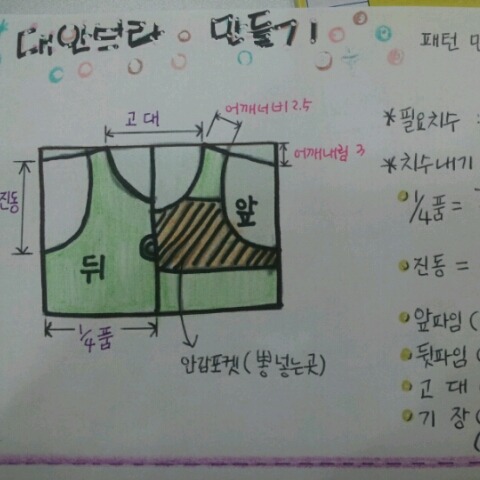 대안브라 만들기
패턴 만
고대
어깨너비 2.5
어깨내림 3
진동
앞
뒤
1/4품
안감포켓(뽕 넣는곳)
*필요치수 =
*치수내기
1/4품 =
진동 =
앞파임(
뒷파임(
고대(
기장(